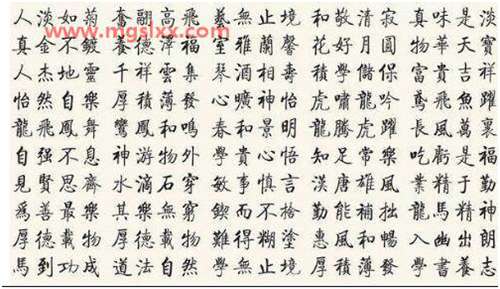 www.mgslxx.com
人淡如菊 奮翮高飛 藝無止境 和敬清寂 真味是淡
真金不鍍 養德澤福 室雅蘭馨 花好月圓 物華天寶
人杰地靈 千祥雲集 琴酒相壽 積學儲保 富貴吉祥
怡然自樂 厚積薄發 心曠神怡 虎嘯龍吟 鳶飛魚躍
龍飛鳳舞 鸞鳳和鳴 春和景明 龍騰虎躍 長風萬裏
自强不息 神游物外 學貴心悟 知足常樂 吃虧是福
見賢思齊 水滴石穿 敏事慎言 漢唐雄風 業精于勤
爲善最樂 其樂無窮 鍥而不捨 勤能補拙 龍馬精神
厚德載物 難得糊塗 惠風和暢 入幽出朗
馬到功成 道法自然 學無止境 厚積薄發 學書養志